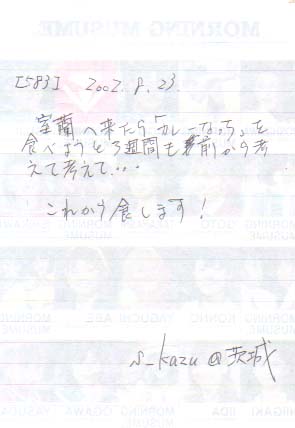 MORNING MUSUME
[583] 2002. 8. 23
室蘭へ来たら「カレーなっち」を
食べようと3週間も前から考
えて考えて・・・
これから食します!
s_kazu @茨城